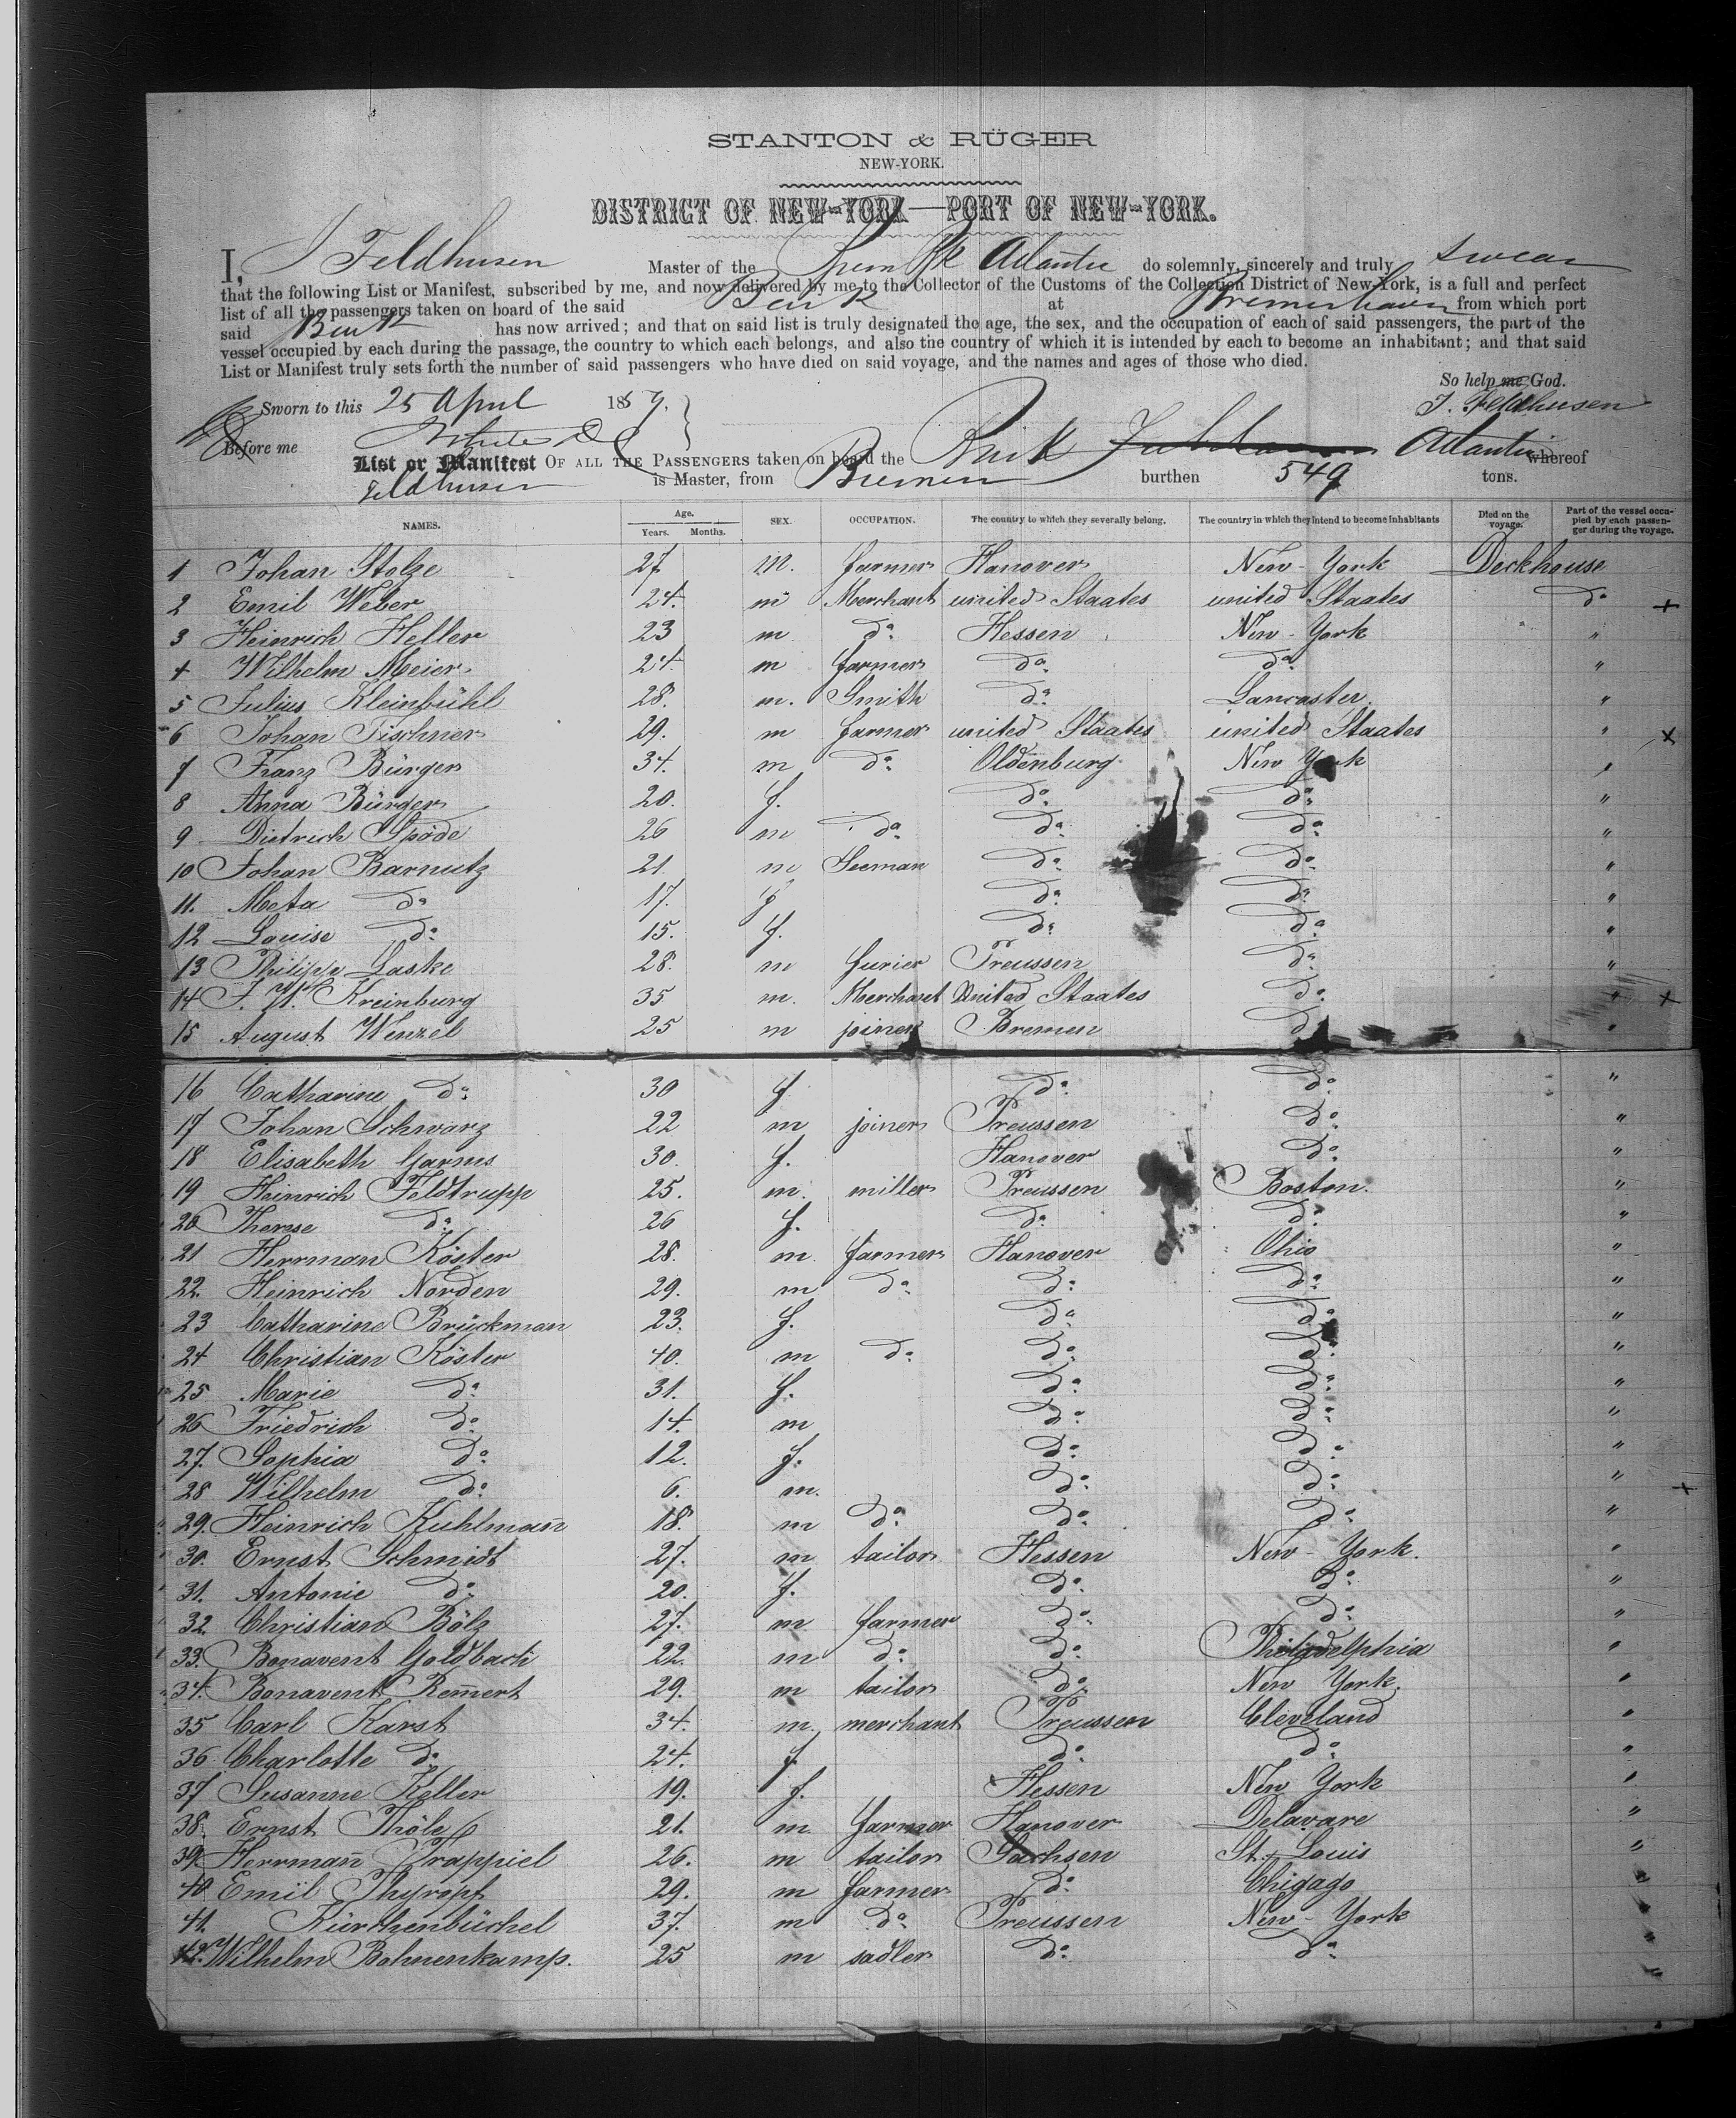 STANTON & RÜGER
NEW-YORK.
DISTRICT OF NEW-YORK—PORT OF NEW-YORK.
I, J Feldhusen Master of the Brem Bk Atlantic do solemnly, sincerely and truly swear
that the following List or Manifest, subscribed by me, and now delivered by me to the Collector of the Customs of the Collection District of New-York, is a full and perfect
list of all the passengers taken on board of the said Bark at Bremerhaven from which port
said Bark has now arrived; and that on said list is truly designated the age, the sex, and the occupation of each of said passengers, the part of the
vessel occupied by each during the passage, the country to which each belongs, and also the country of which it is intended by each to become an inhabitant; and that said
List or Manifest truly sets forth the number of said passengers who have died on said voyage, and the names and ages of those who died.
So help me God.
Sworn to this 25 April 1859. J. Feldhusen
Before me
List or Manifest OF ALL THE PASSENGERS taken on board the Bark Atlantic whereof
Feldhusen is Master, from Bremen burthen 549 tons.
NAMES. Age. Years. Months. SEX. OCCUPATION. The country to which they severally belong. The country in which they intend to become inhabitants Died on the voyage. Part of the vessel occupied by each passenger during the voyage.
1 Johan Stolze 27 m. farmer Hanover New-York Deckhouse
2 Emil Weber 24. m Merchant united Staates united Staates do +
3 Heinrich Heller 23 m do Hessen New-York "
4 Wilhelm Meier 24. m farmer do do "
5 Julius Kleinbühl 28. m. Smith do Lancaster "
6 Johan Tischner 29. m farmer united Staates united Staates " x
7 Franz Bürger 34. m do Oldenburg New York "
8 Anna Bürger 20. f. do do "
9 Dietrich Späde 26 m do do do "
10 Johan Barnutz 21. m Seeman do do "
11. Meta do 17. f do do "
12 Louise do 15. f. do do "
13 Philipp Laske 28. m furier Preussen do "
14 J. W. Kreinburg 35 m. Merchant United Staates do " +
15 August Wenzel 25 m joiner Bremen do "
16 Catharine do 30 f. do do "
17 Johan Schwarz 22 m joiner Preussen do "
18 Elisabeth Garms 30. f. Hanover do "
19 Heinrich Feldtrupp 25. m. miller Preussen Boston. "
20 Therese do 26 f. do do "
21 Herrman Köster 28. m farmer Hanover Ohio "
22. Heinrich Norden 29. m do do do "
23 Catharine Brückman 23. f. do do "
24 Christian Köster 40. m do do do "
25 Marie do 31. f. do do "
26 Friedrich do 14. m do do "
27. Sophia do 12. f. do do "
28 Wilhelm do 6. m. do do " +
29. Heinrich Kuhlmañ 18. m do do do "
30. Ernst Schmidt 27. m tailor Hessen New-York. "
31. Antonie do 20. f. do do "
32. Christian Bölz 27. m farmer do do "
33. Bonavent Goldbach 22. m do do Philadelphia "
34. Bonavent Rem̄ert 29. m tailor do New York. "
35 Carl Karst 34. m. merchant Preussen Cleveland "
36 Charlotte do 24. f do do "
37 Susanne Keller 19. f. Hessen New York "
38. Ernst Thöle 21. m. farmer Hanover Delavare "
39. Herrmañ Trappiel 26. m tailor Sachsen St. Louis "
40 Emil Thyropf 29. m farmer do Chigago "
41. Kürchenbüchel 37. m do Preussen New-York "
42. Wilhelm Bohnenkamp. 25 m sadler do do "